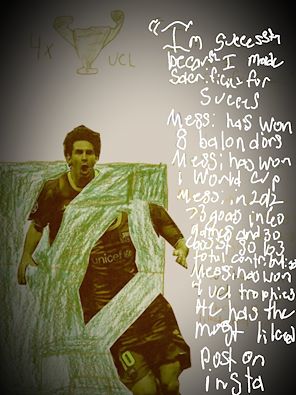 4x
UCL
"I'm successful
because I made
sacrifices for
success
Messi has won
8 balondors
Messi has won
1 World Cup
Messi in 2012
73 goals in 60
games and 30
total contributions
Messi has won
4 UCL trophies
He has the
most liked
post on
insta
unicef
10